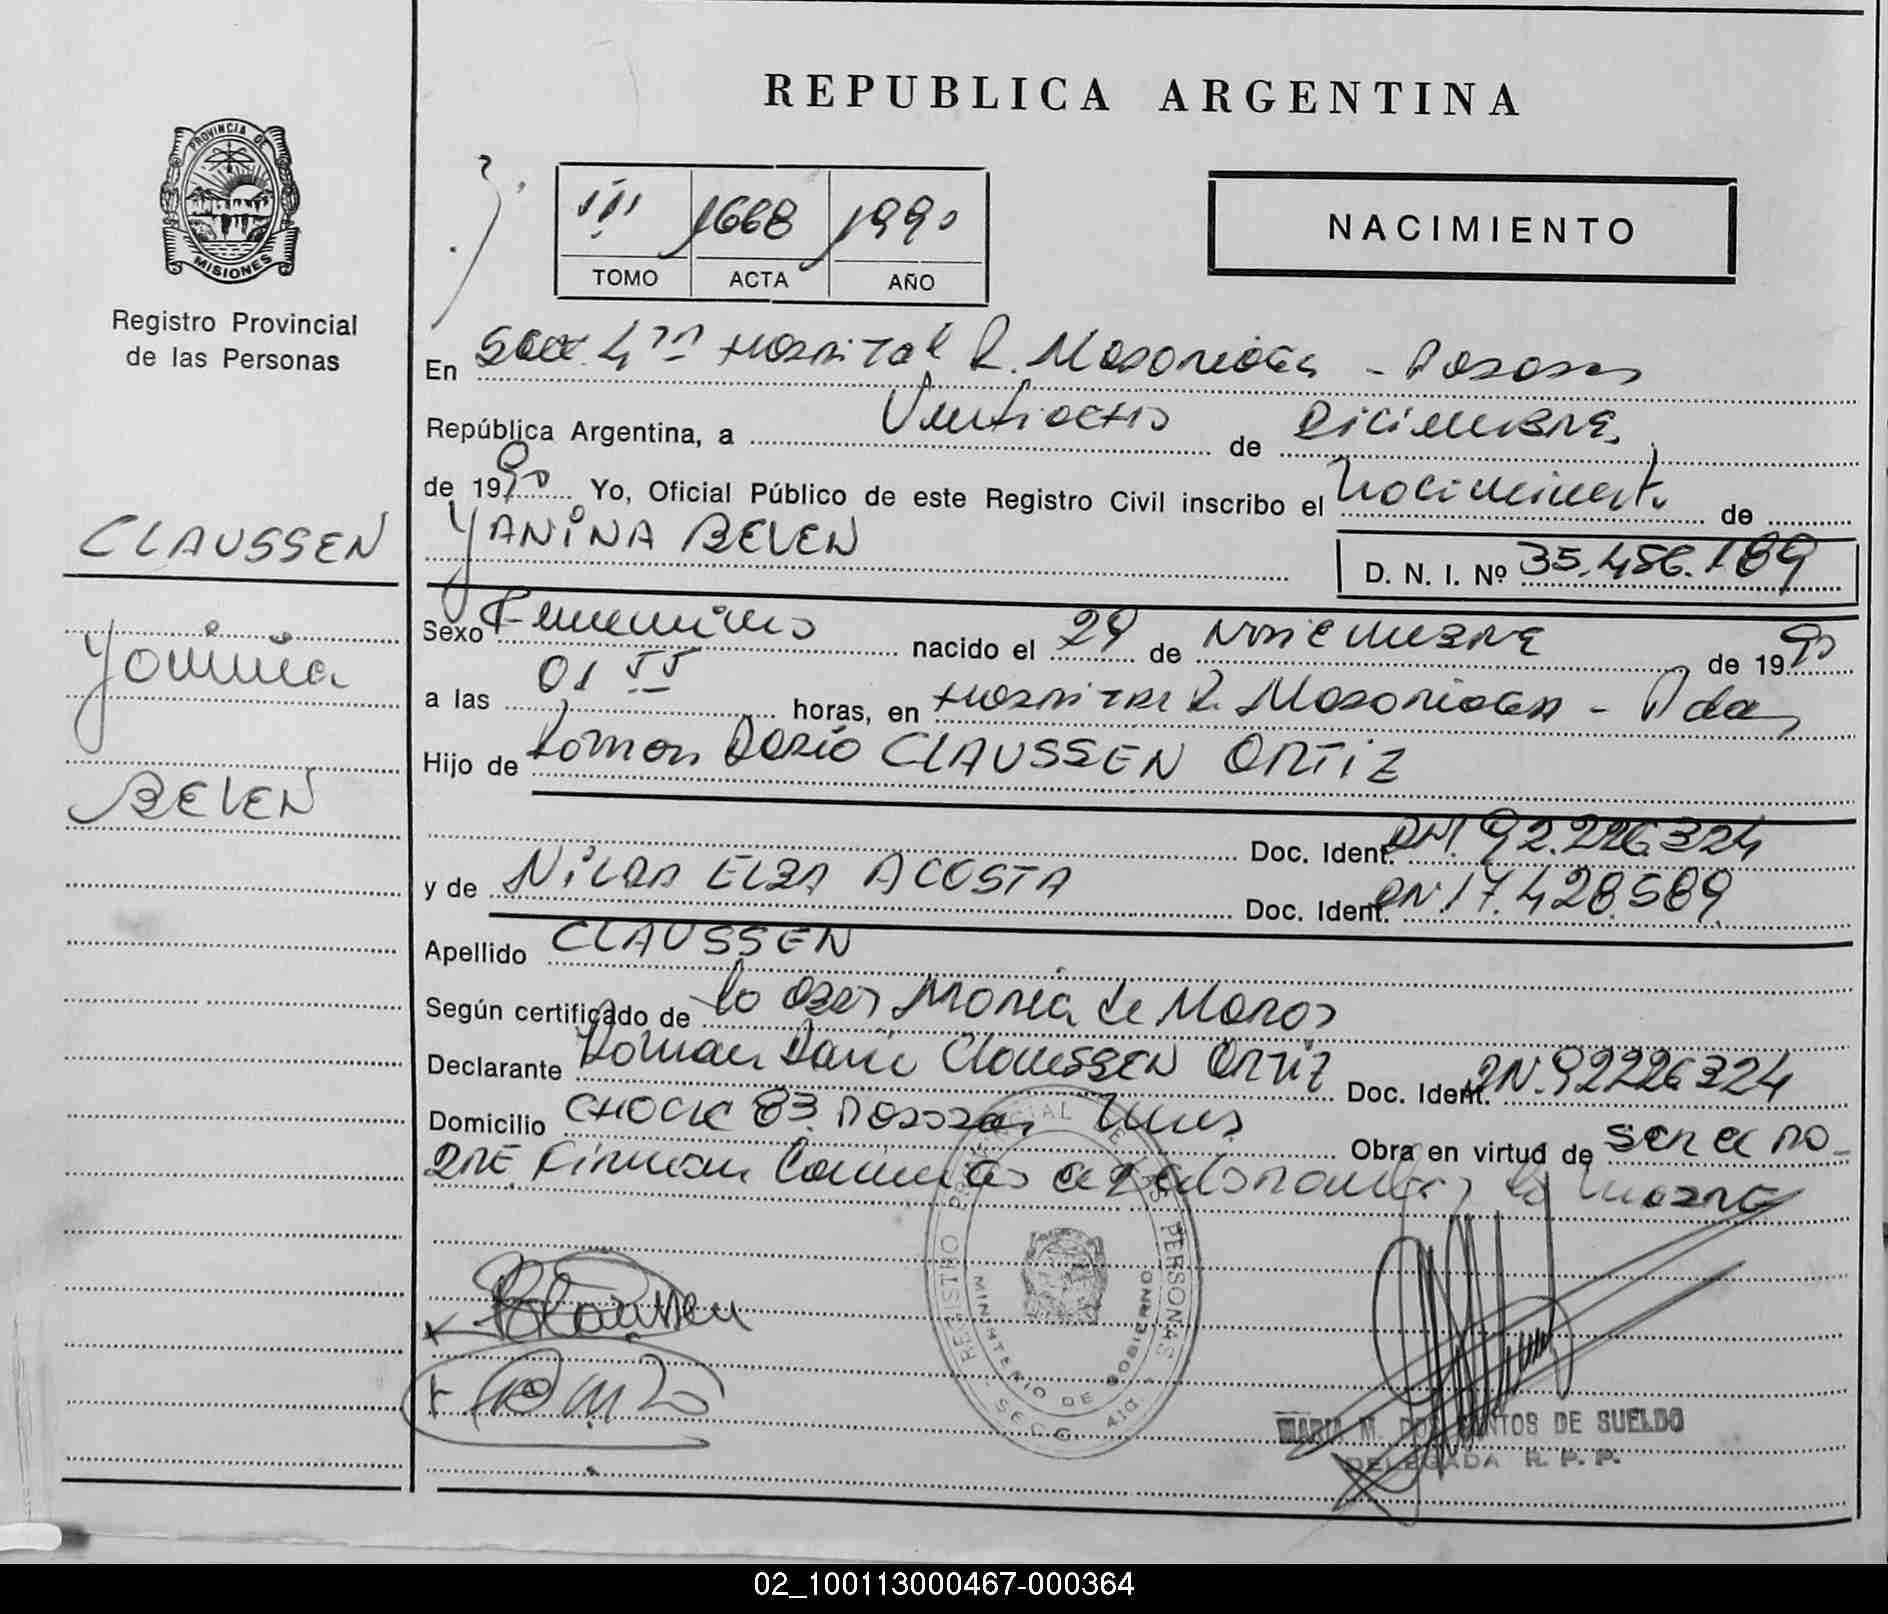 REPUBLICA ARGENTINA
PROVINCIA DE
MISIONES
Registro Provincial
de las Personas
III 1668 1990
TOMO ACTA AÑO
NACIMIENTO
En Secc. 4ta Hospital R. Madariaga - Posadas
República Argentina, a Veintiocho de Diciembre
de 1990 Yo, Oficial Público de este Registro Civil inscribo el Nacimiento de
YANINA BELEN
D. N. I. Nº 35.456.189
CLAUSSEN
Yanina
BELEN
Sexo Femenino nacido el 29 de Noviembre de 1990
a las 01 55 horas, en Hospital R. Madariaga - Pdas
Hijo de Román Darío CLAUSSEN ORTIZ
Doc. Ident. DNI. 92.226.324
y de NILDA ELBA ACOSTA Doc. Ident. DNI. 17.428.589
Apellido CLAUSSEN
Según certificado de la Obst María de
Declarante Román Darío Claussen ORTIZ Doc. Ident. DN. 92226324
Domicilio 83 Posadas Mnes. Obra en virtud de ser el pa-
dre. Firman la madre
REGISTRO PROVINCIAL DE LAS PERSONAS
MINISTERIO DE GOBIERNO
SECC. 4ta.
Claussen
MARIA M. DOS SANTOS DE SUELDO
DELEGADA R. P. P.
02_100113000467-000364